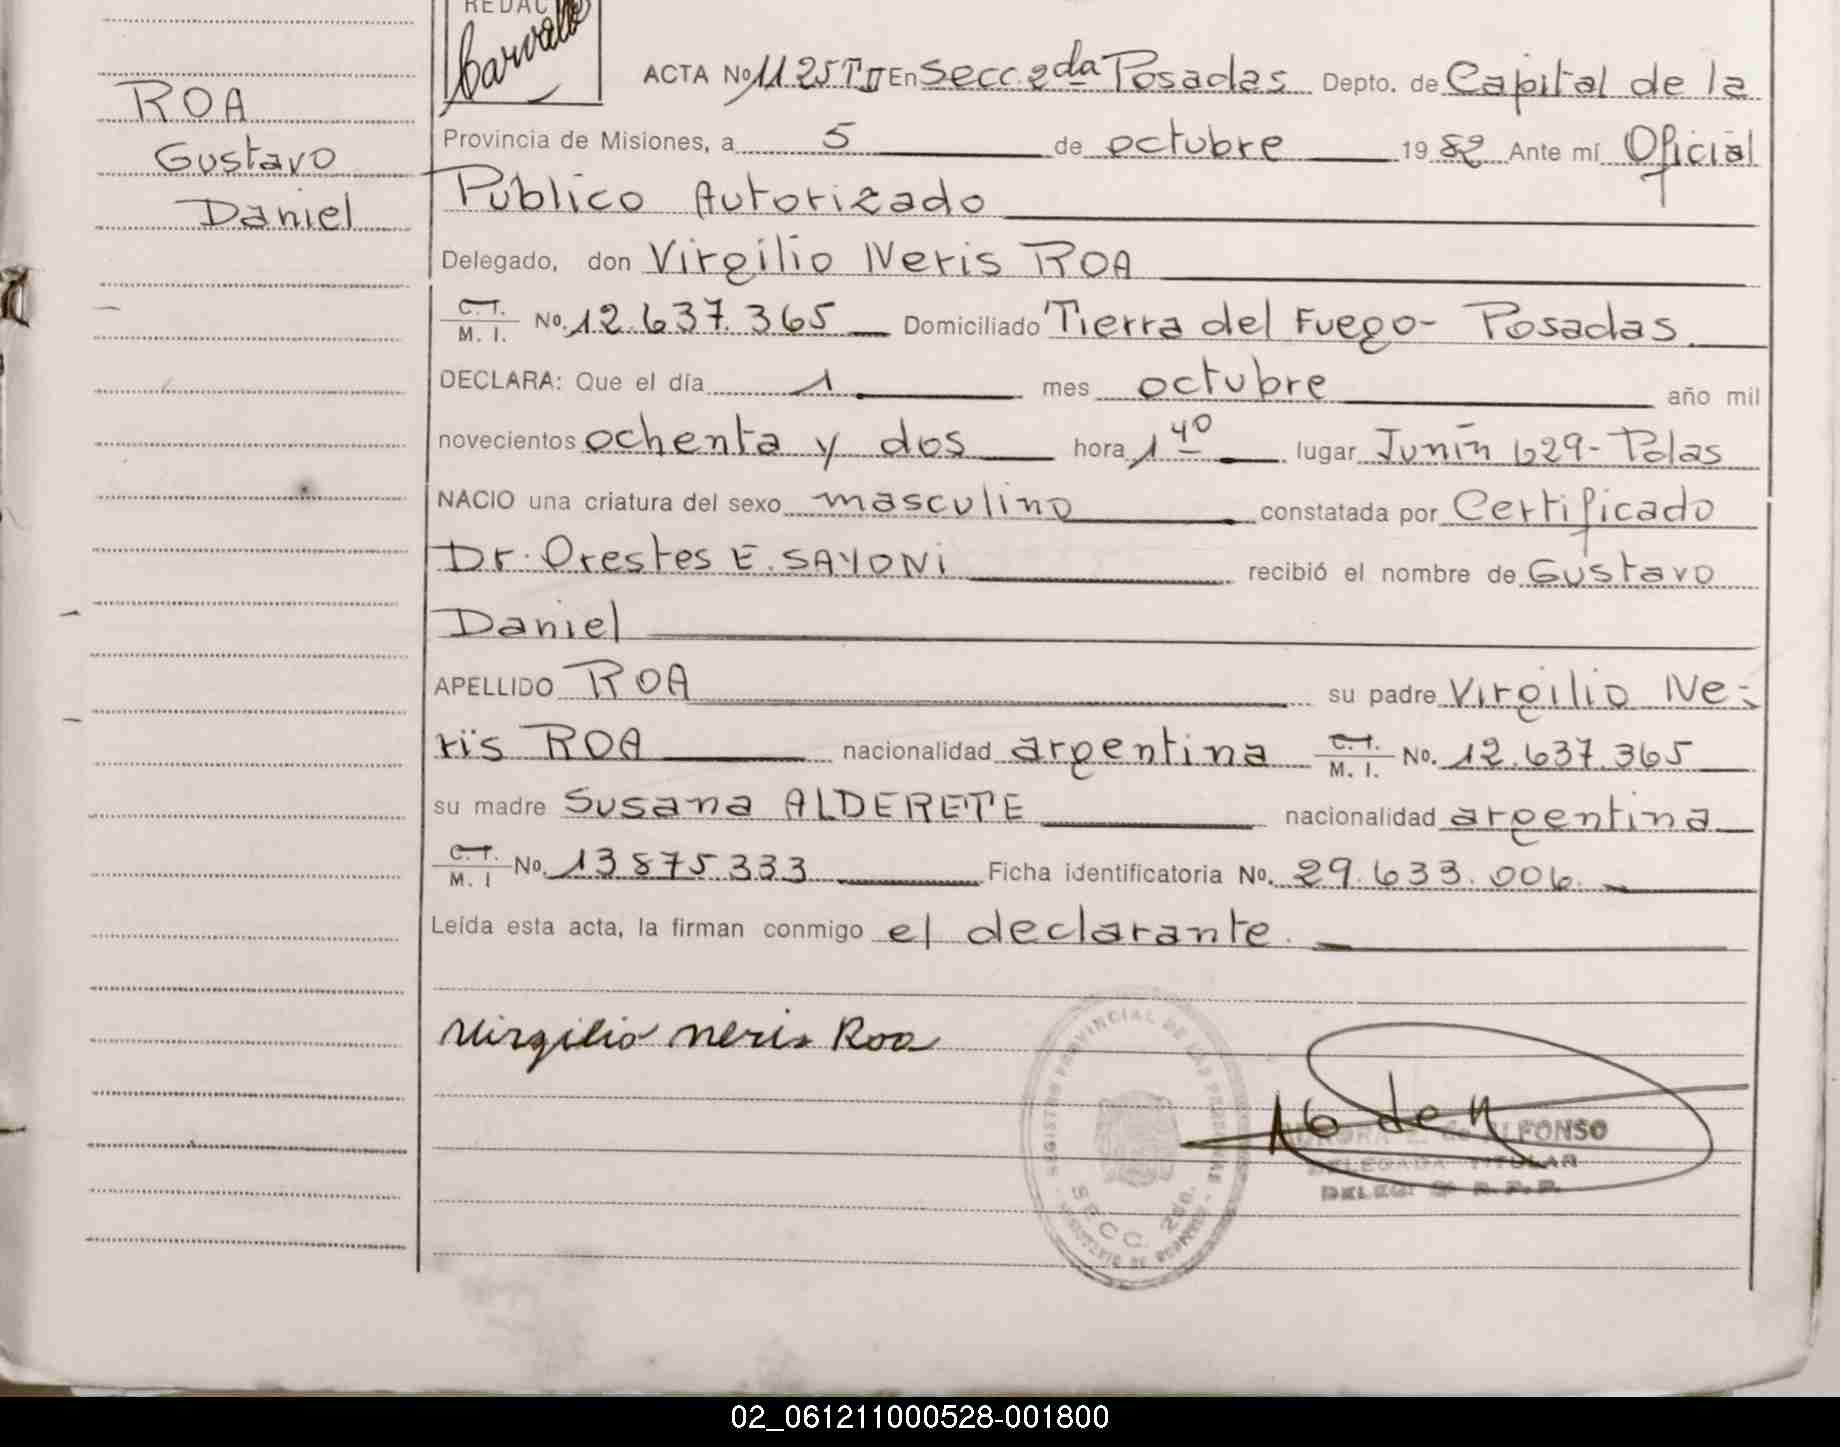 REDAC
Carvallo
ROA
Gustavo
Daniel
ACTA No 1125 T II En Secc. 2da Posadas Depto. de Capital de la
Provincia de Misiones, a 5 de octubre 1982 Ante mí Oficial
Público Autorizado
Delegado, don Virgilio Neris ROA
C.I. M. I. No. 12.637.365 Domiciliado Tierra del Fuego- Posadas.
DECLARA: Que el día 1 mes octubre año mil
novecientos ochenta y dos hora 1 40 lugar Junín 629- Pdas
NACIO una criatura del sexo masculino constatada por Certificado
Dr. Orestes E. SAYONI recibió el nombre de Gustavo
Daniel
APELLIDO ROA su padre Virgilio Ne-
ris ROA nacionalidad argentina C.I. M. I. No. 12.637.365
su madre Susana ALDERETE nacionalidad argentina
C.I. M. I No. 13875.333 Ficha identificatoria No. 29.633.006.
Leída esta acta, la firman conmigo el declarante.
Virgilio Neris Roa
REGISTRO PROVINCIAL DE LAS PERSONAS
SECC. 2da.
AURORA E. de ALFONSO
DELEGADA TITULAR
DELEG. R. P. P.
02_061211000528-001800